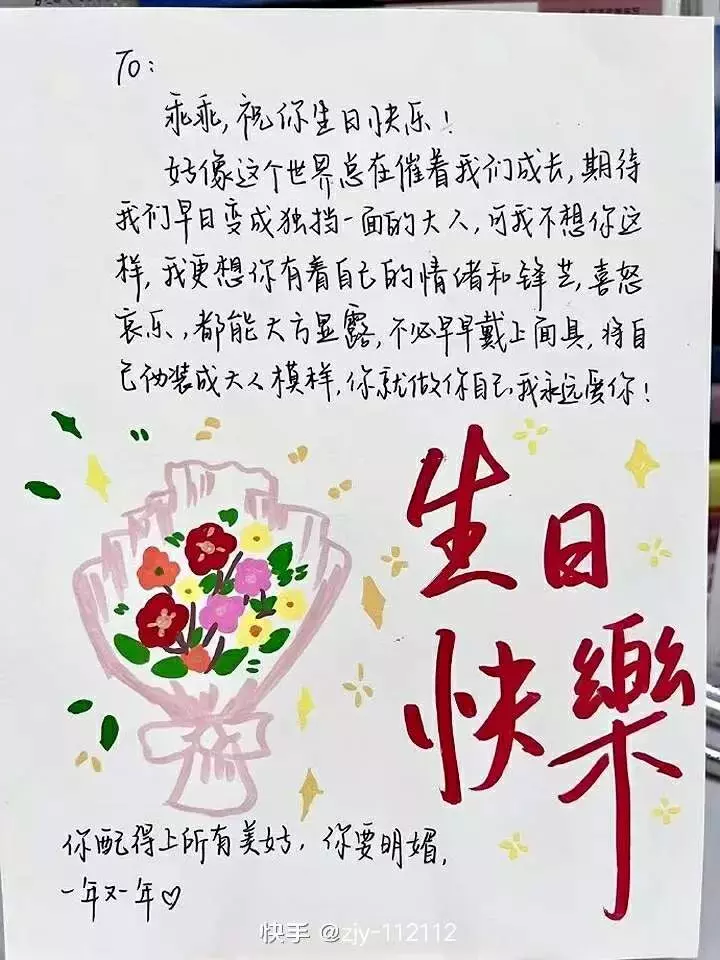 To:
乖乖,祝你生日快乐!
好像这个世界总在催着我们成长,期待
我们早日变成独挡一面的大人,可我不想你这
样,我更想你有着自己的情绪和锋芒,喜怒
哀乐,都能大方显露,不必早早戴上面具,将自
己伪装成大人模样,你就做你自己,我永远爱你!
生日
快樂
你配得上所有美好,你要明媚,
一年又一年♡
快手 @zjy-112112